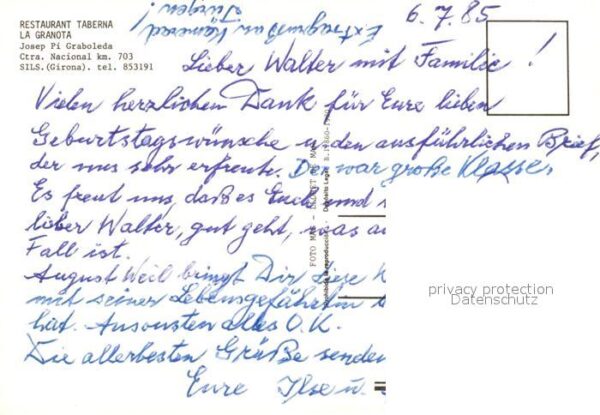 RESTAURANT TABERNA
LA GRANOTA
Josep Pí Graboleda
Ctra. Nacional km. 703
SILS.(Girona). tel. 853191
Extragruß an
Jürgen!
6.7.85
Lieber Walter mit Familie!
Vielen herzlichen Dank für Eure lieben
Geburtstagswünsche u. den ausführlichen Brief,
der uns sehr erfreute. Das war große Klasse.
Es freut uns, daß es Euch und
lieber Walter, gut geht, was
Fall ist.
August Weil bringt Dir
mit seiner Lebensgefährtin
hat. Ansonsten alles O.K.
Die allerbesten Grüße senden
Eure Ilse u.
FOTO
Depósito Legal B.
privacy protection
Datenschutz